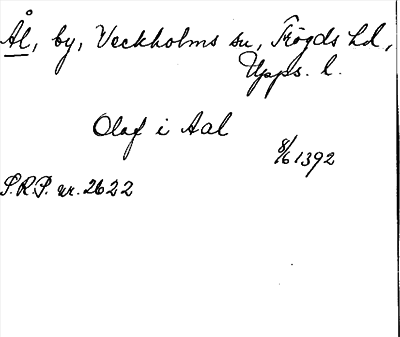 Ål, by, Veckholms sn, Trögds hd,
Upps. l.
Olaf i Aal
8/6 1392
S.R.P. nr. 2622